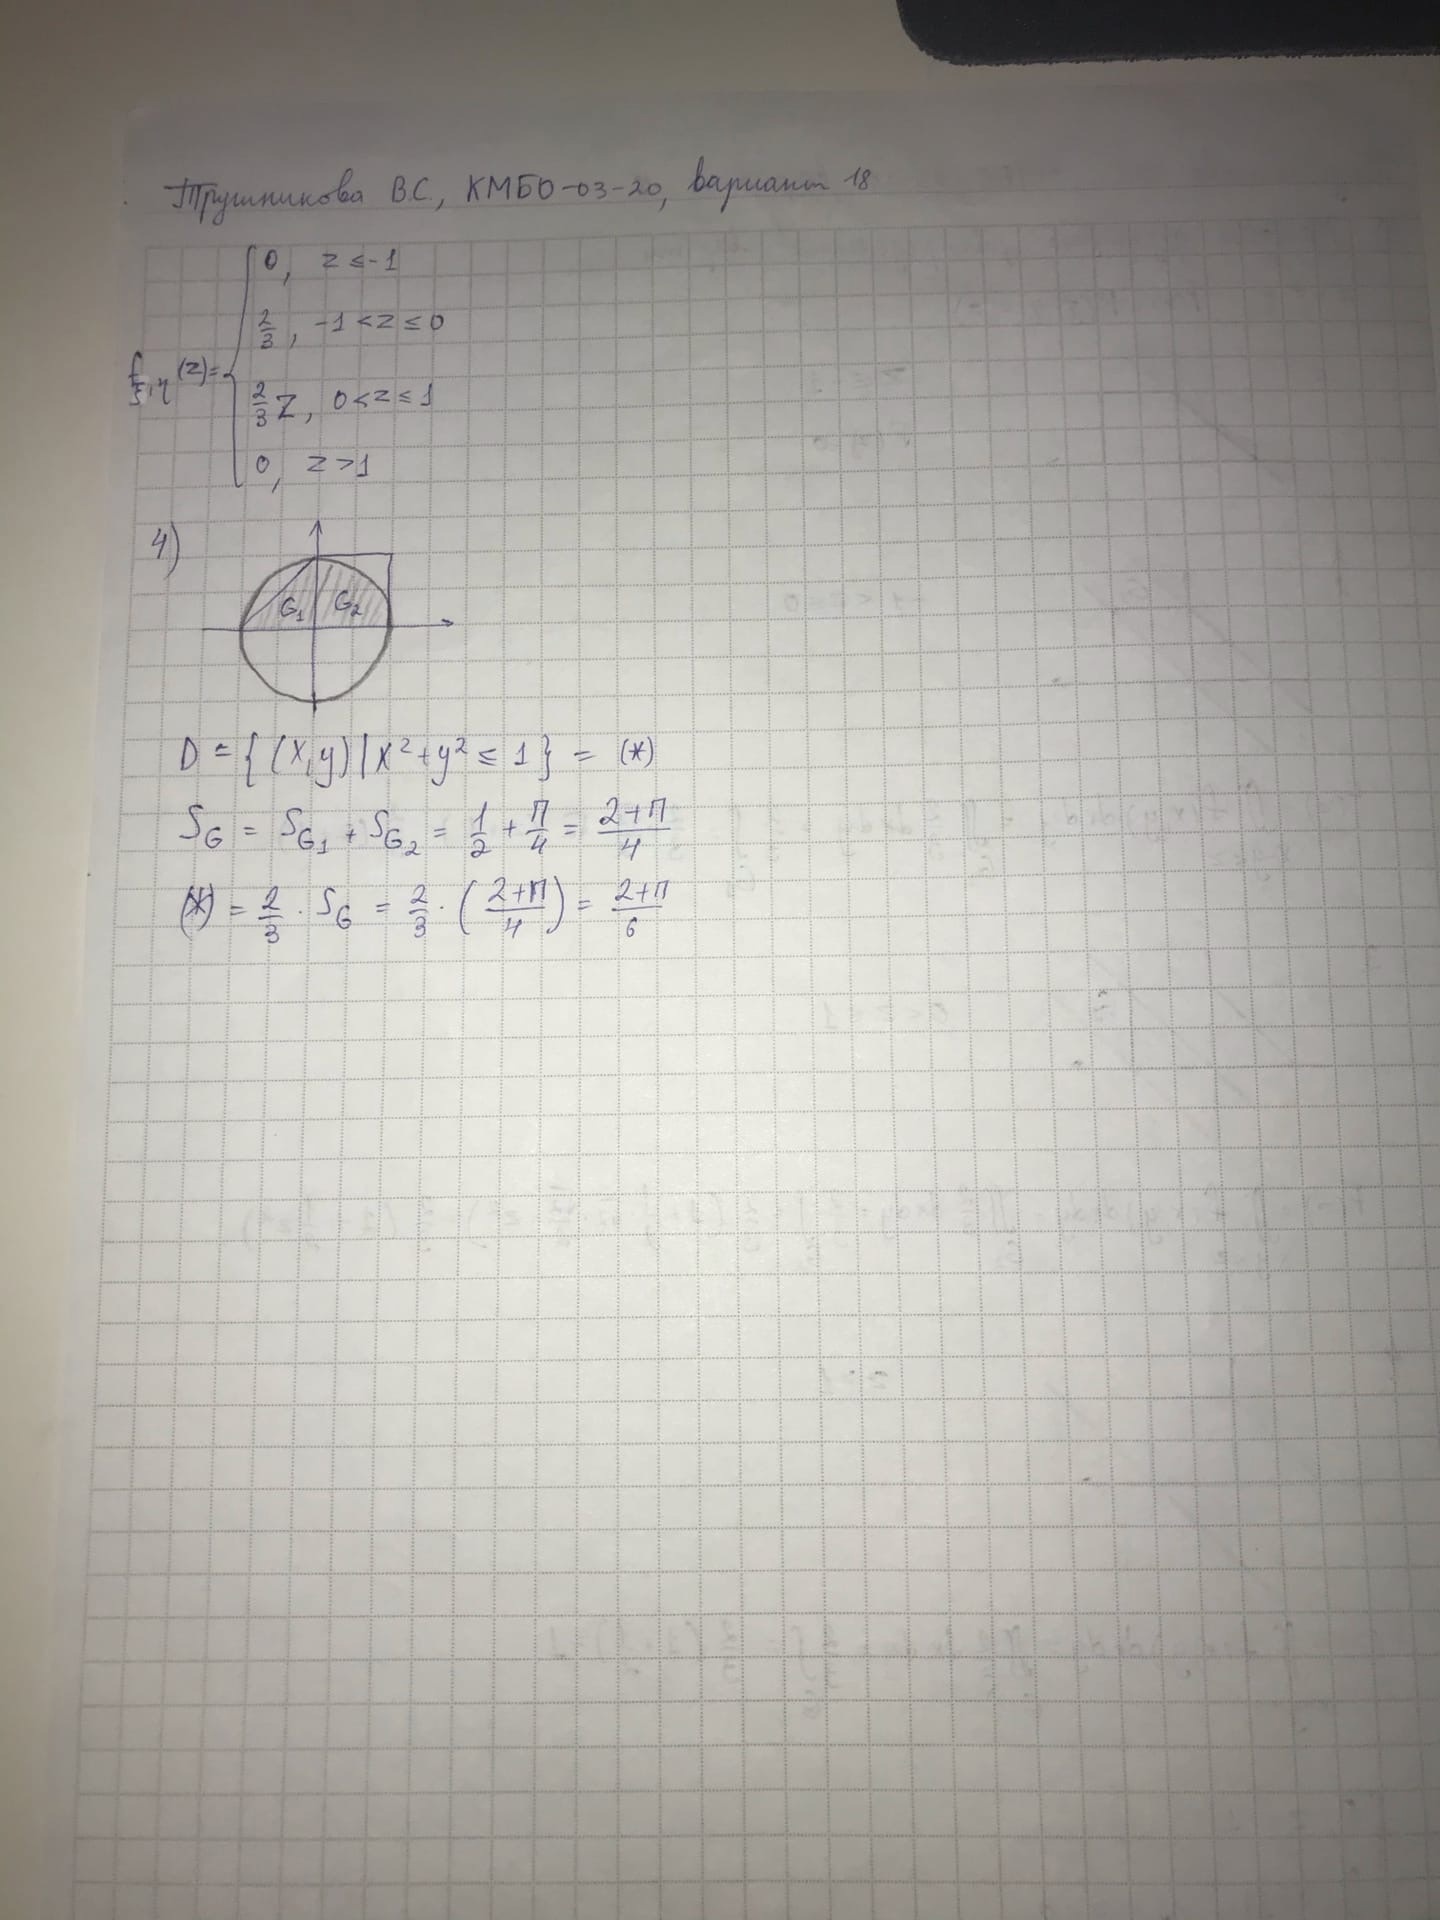 Трушникова В.С., КМБО-03-20, вариант 18
0, z ≤ -1
2/3, -1 < z ≤ 0
f ξ,η (z) =
2/3 z, 0 < z ≤ 1
0, z > 1
4)
G₁ G₂
D = { (x,y) | x² + y² ≤ 1 } = (*)
S_G = S_G₁ + S_G₂ = 1/2 + π/4 = (2+π)/4
(*) = 2/3 · S_G = 2/3 · ( (2+π)/4 ) = (2+π)/6